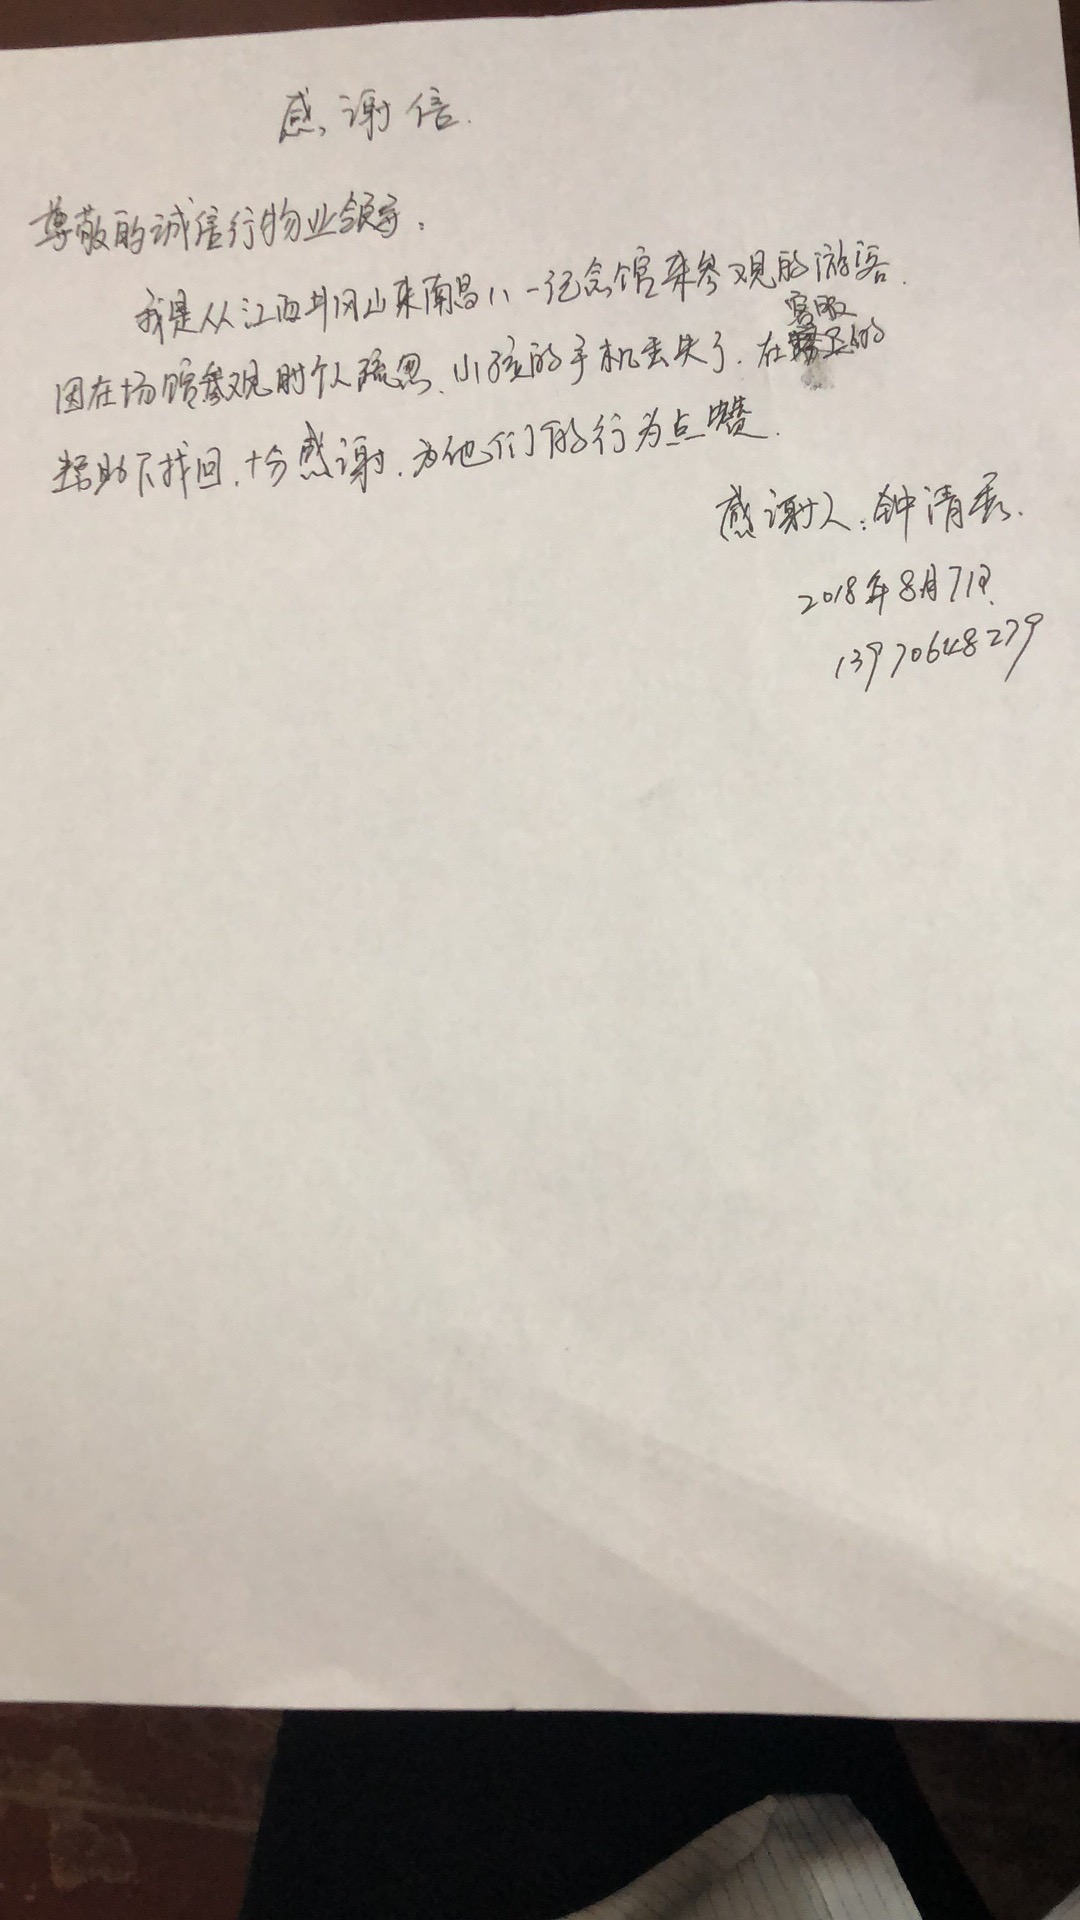 感谢信.
尊敬的诚信行物业领导：
我是从江西井冈山来南昌八一纪念馆来参观的游客.
因在场馆参观时个人疏忽、小孩的手机丢失了.在客服的
帮助下找回.十分感谢.为他们的行为点赞.
感谢人：钟清
2018年8月7日.
13970648279